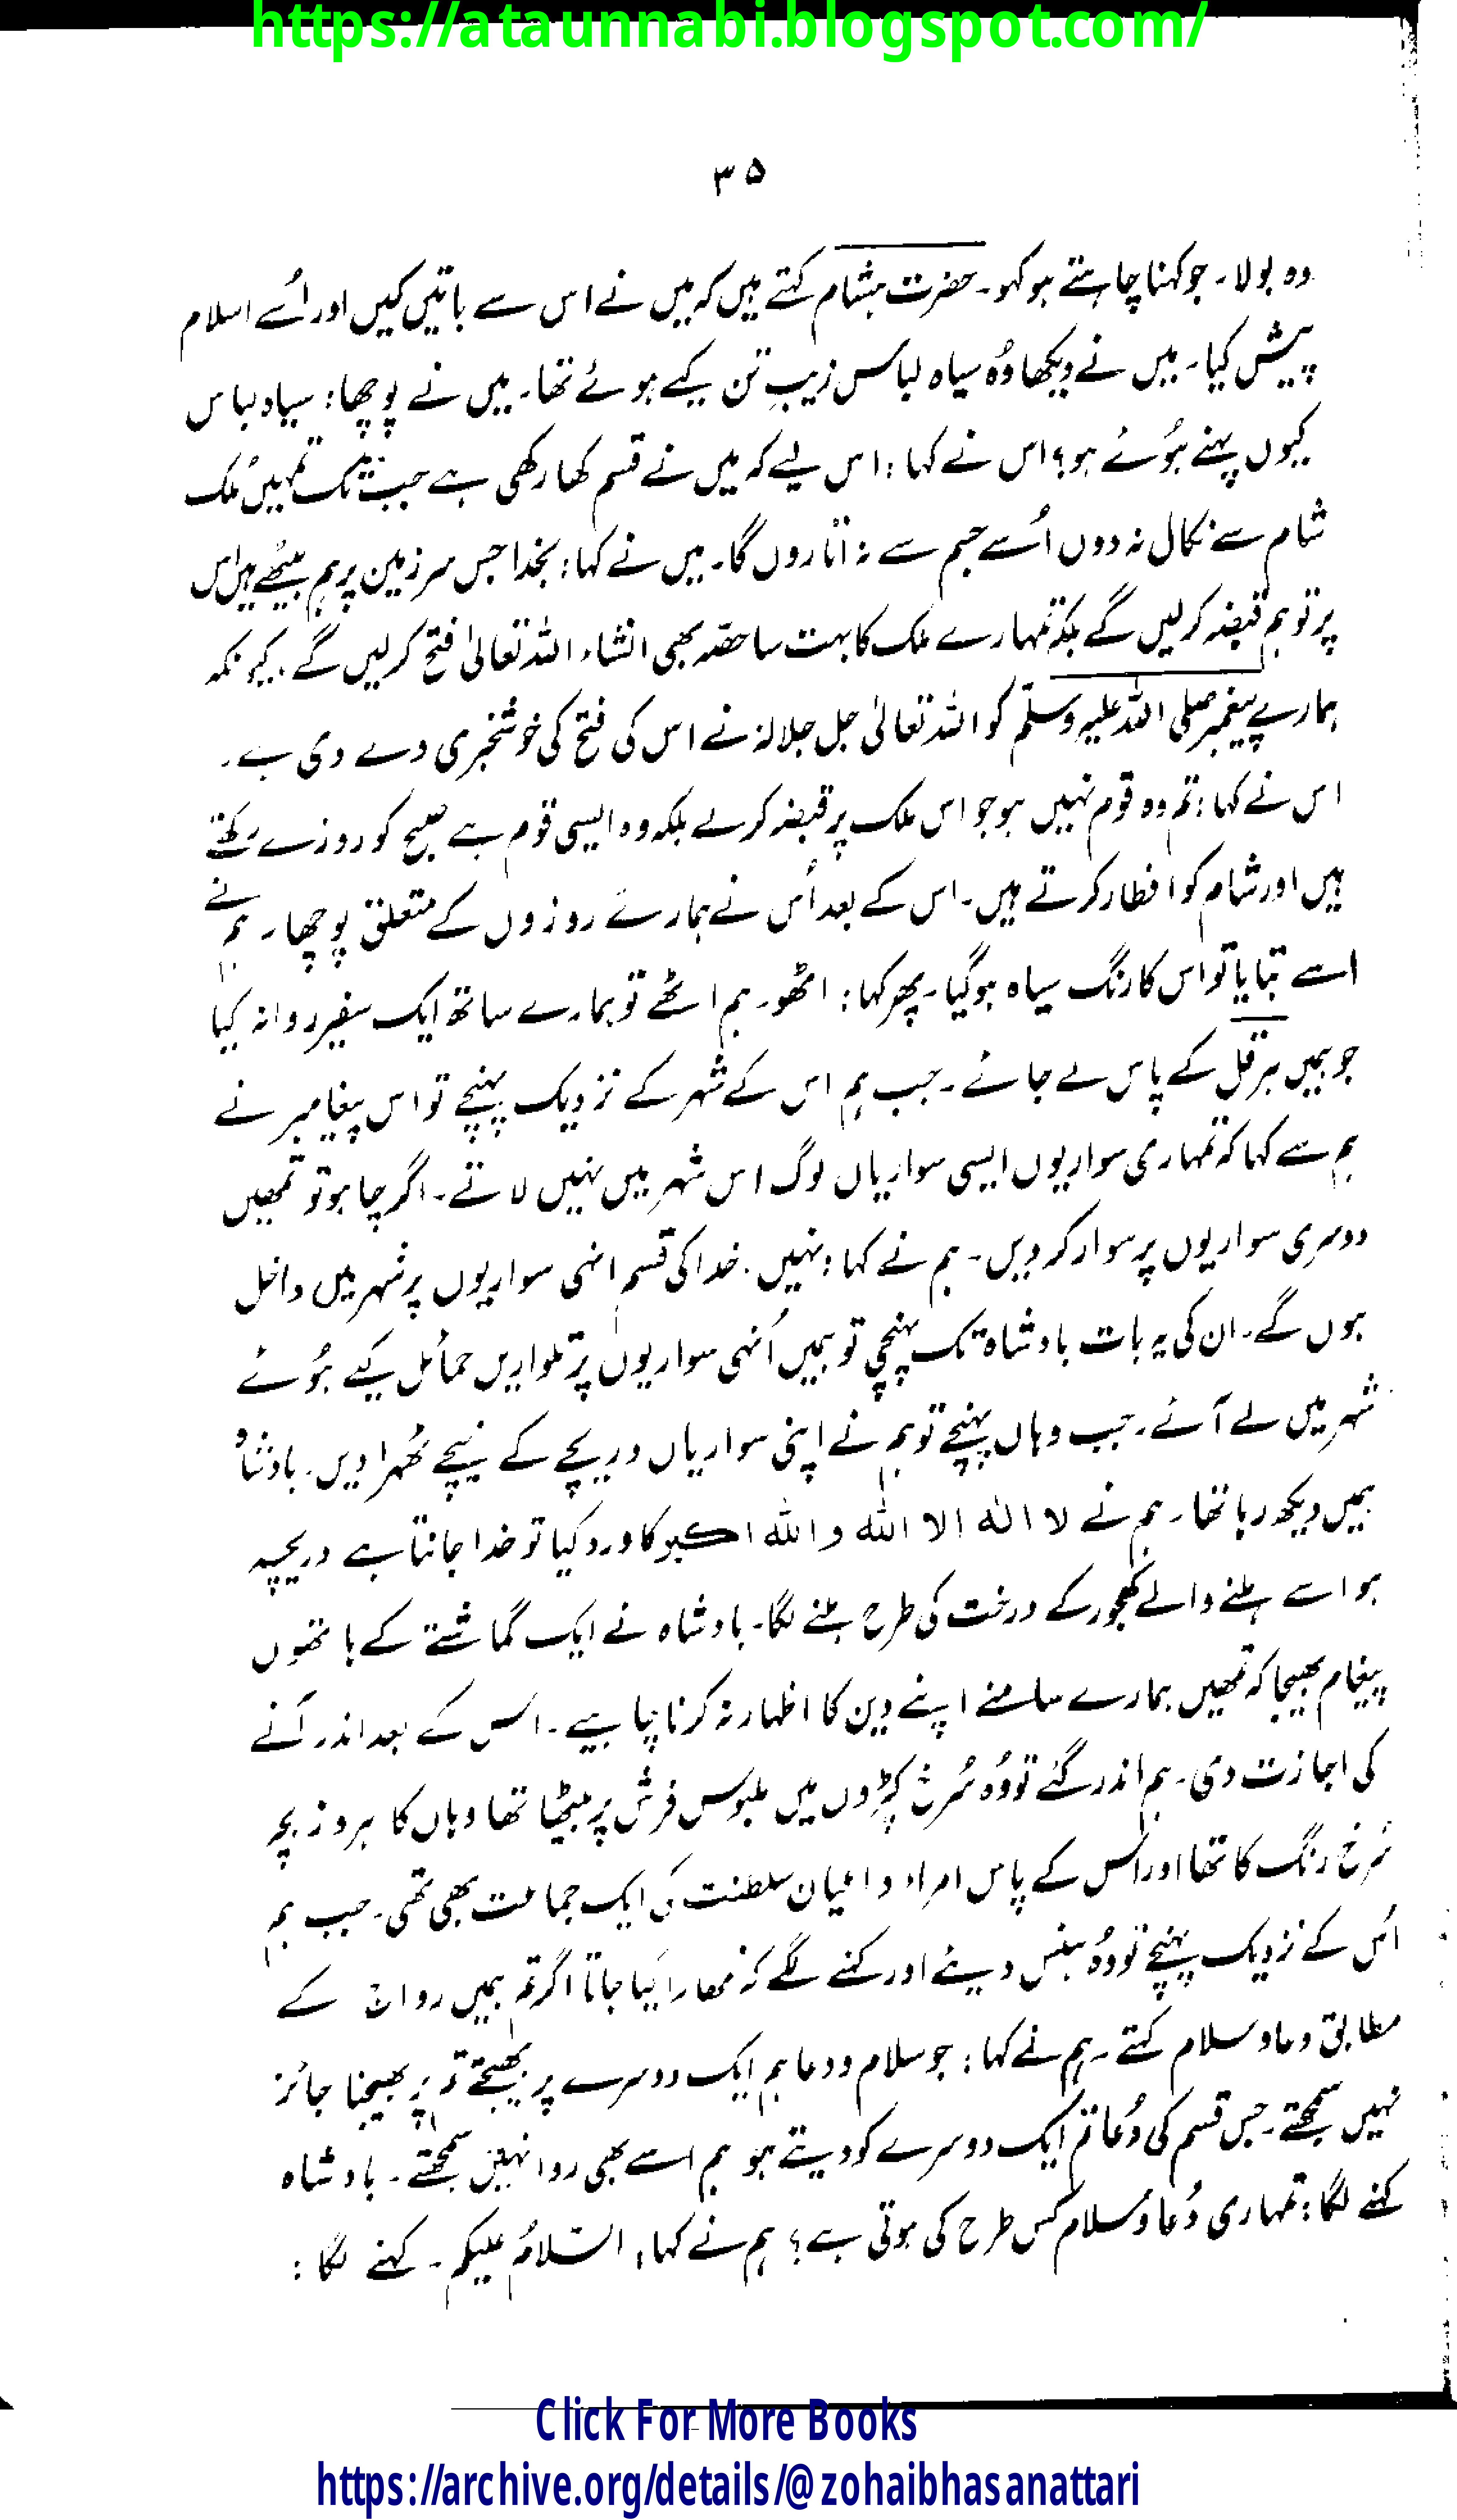 https://ataunnabi.blogspot.com/
۳۵
وہ بولا۔ جو کہنا چاہتے ہو کہو۔ حضرت ہشام کہتے ہیں کہ میں نے اس سے باتیں کیں اور اُسے اسلام
پیش کیا۔ میں نے دیکھا وُہ سیاہ لباس زیبِ تن کیے ہوئے تھا۔ میں نے پوچھا: سیاہ لباس
کیوں پہنے ہوُئے ہو؟ اس نے کہا: اس لیے کہ میں نے قسم کھا رکھی ہے جب تک تمہیں مُلک
شام سے نکال نہ دوں اُسے جسم سے نہ اتاروں گا۔ میں نے کہا: بخدا جس سرزمین پر ہم بیٹھے ہیں اس
پر تو ہم قبضہ کرلیں گے بلکہ تمہارے ملک کا بہت سا حصّہ بھی انشاء اللہ تعالیٰ فتح کرلیں گے۔ کیونکہ
ہمارے پیغمبر صلی اللہ علیہ وسلّم کو اللہ تعالیٰ جل جلالہٗ نے اس کی فتح کی خوشخبری دے دی ہے۔
اس نے کہا: تم وہ قوم نہیں ہو جو اس ملک پر قبضہ کرلے بلکہ وہ ایسی قوم ہے صبح کو روزے رکھتے
ہیں اور شام کو افطار کرتے ہیں۔ اس کے بعد اُس نے ہمارے روزوں کے متعلق پوچھا۔ ہم نے
اسے بتایا تو اس کا رنگ سیاہ ہوگیا۔ پھر کہا: اٹھو۔ ہم اٹھے تو ہمارے ساتھ ایک سفیر روانہ کیا
جو ہمیں ہرقل کے پاس لے جائے۔ جب ہم اس کے شہر کے نزدیک پہنچے تو اس پیغامبر نے
ہم سے کہا کہ تمہاری سواریوں ایسی سواریاں لوگ اس شہر میں نہیں لاتے۔ اگر چاہو تو تمھیں
دوسری سواریوں پر سوار کر دیں۔ ہم نے کہا: نہیں۔ خدا کی قسم انہی سواریوں پر شہر میں داخل
ہوں گے۔ ان کی یہ بات بادشاہ تک پہنچی تو ہمیں اُنہی سواریوں پر تلواریں حمائل کیے ہوُئے
شہر میں لے آئے۔ جب وہاں پہنچے تو ہم نے اپنی سواریاں دریچے کے نیچے ٹھہرا دیں۔ بادشاہ
ہمیں دیکھ رہا تھا۔ ہم نے لا الٰہ الا اللہ واللہ اکبر کا ورد کیا تو خدا جانتا ہے دریچہ
ہوا سے ہلنے والے کھجور کے درخت کی طرح ہلنے لگا۔ بادشاہ نے ایک گماشتے کے ہاتھوں
پیغام بھیجا کہ تمھیں ہمارے سامنے اپنے دین کا اظہار نہ کرنا چاہیے۔ اس کے بعد اندر آنے
کی اجازت دی۔ ہم اندر گئے تو وُہ سُرخ کپڑوں میں ملبوس فرش پر بیٹھا تھا وہاں کا
سُرخ رنگ کا تھا اور اس کے پاس امراء و اعیان سلطنت کی ایک جماعت بھی تھی۔ جب ہم
اس کے نزدیک پہنچے تو وُہ ہنس دیئے اور کہنے لگے کہ تمھارا کیا جاتا اگر تم ہمیں رواج کے
مطابق دعا و سلام کہتے۔ ہم نے کہا: جو سلام و دعا ہم ایک دوسرے پر بھیجتے تم پر بھیجنا جائز
نہیں سمجھتے۔ جس قسم کی دُعا تم ایک دوسرے کو دیتے ہو ہم اسے بھی روا نہیں سمجھتے۔ بادشاہ
کہنے لگا: تمہاری دُعا و سلام کس طرح کی ہوتی ہے؟ ہم نے کہا، السّلامُ علیکم۔ کہنے لگا:
Click For More Books
https://archive.org/details/@zohaibhasanattari